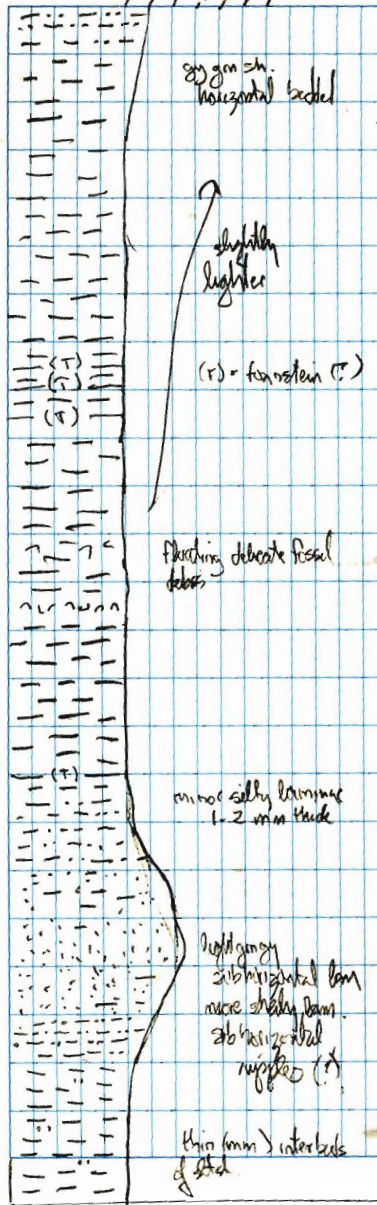 gy grn sh.
horizontal bedded
slightly
lighter
(T)
(T)
(T)
(T) = (?)
delicate fossil
debris
(T)
minor silty laminae
1-2 mm thick
light
subhorizontal lam
more shaly lam.
subhorizontal
ripples (?)
thin (mm) interbeds
of